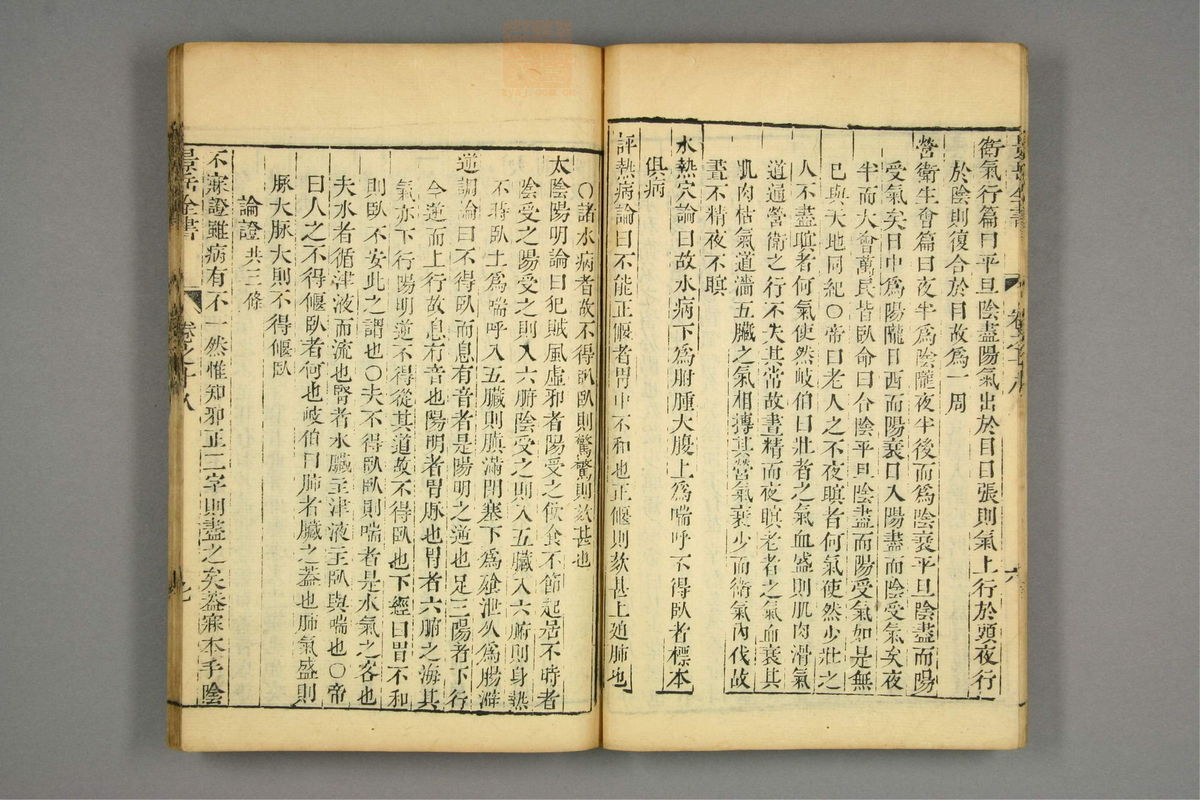 衛氣行篇曰平旦陰盡陽氣出於目目張則氣上行於頭夜行
於陰則復合於目故爲一周
營衛生會篇曰夜半爲陰隴夜半後而爲陰衰平旦陰盡而陽
受氣矣日中爲陽隴日西而陽衰日入陽盡而陰受氣矣夜
半而大會萬民皆臥命曰合陰平旦陰盡而陽受氣如是無
已與天地同紀〇帝曰老人之不夜瞑者何氣使然少壯之
人不盡瞑者何氣使然岐伯曰壯者之氣血盛則肌肉滑氣
道通營衛之行不失其常故晝精而夜瞑老者之氣血衰其
肌肉枯氣道濇五臟之氣相摶其營氣衰少而衛氣內伐故
晝不精夜不瞑
水熱穴論曰故水病下爲胕腫大腹上爲喘呼不得臥者標本
俱病
評熱病論曰不能正偃者胃中不和也正偃則欬甚上廹肺也
〇諸水病者故不得臥臥則驚驚則欬甚也
太陰陽明論曰犯賊風虛邪者陽受之飲食不節起居不時者
陰受之陽受之則入六腑陰受之則入五臟入六腑則身熱
不時臥上爲喘呼入五臟則䐜滿閉塞下爲飧泄久爲腸澼
逆調論曰不得臥而息有音者是陽明之逆也足三陽者下行
今逆而上行故息有音也陽明者胃脉也胃者六腑之海其
氣亦下行陽明逆不得從其道故不得臥也下經曰胃不和
則臥不安此之謂也〇夫不得臥臥則喘者是水氣之客也
夫水者循津液而流也腎者水臟主津液主臥與喘也〇帝
曰人之不得偃臥者何也岐伯曰肺者臟之蓋也肺氣盛則
脉大脉大則不得偃臥
論證 共三條
不寐證雖病有不一然惟知邪正二字則盡之矣蓋寐本乎陰
景岳全書 卷之十八 七